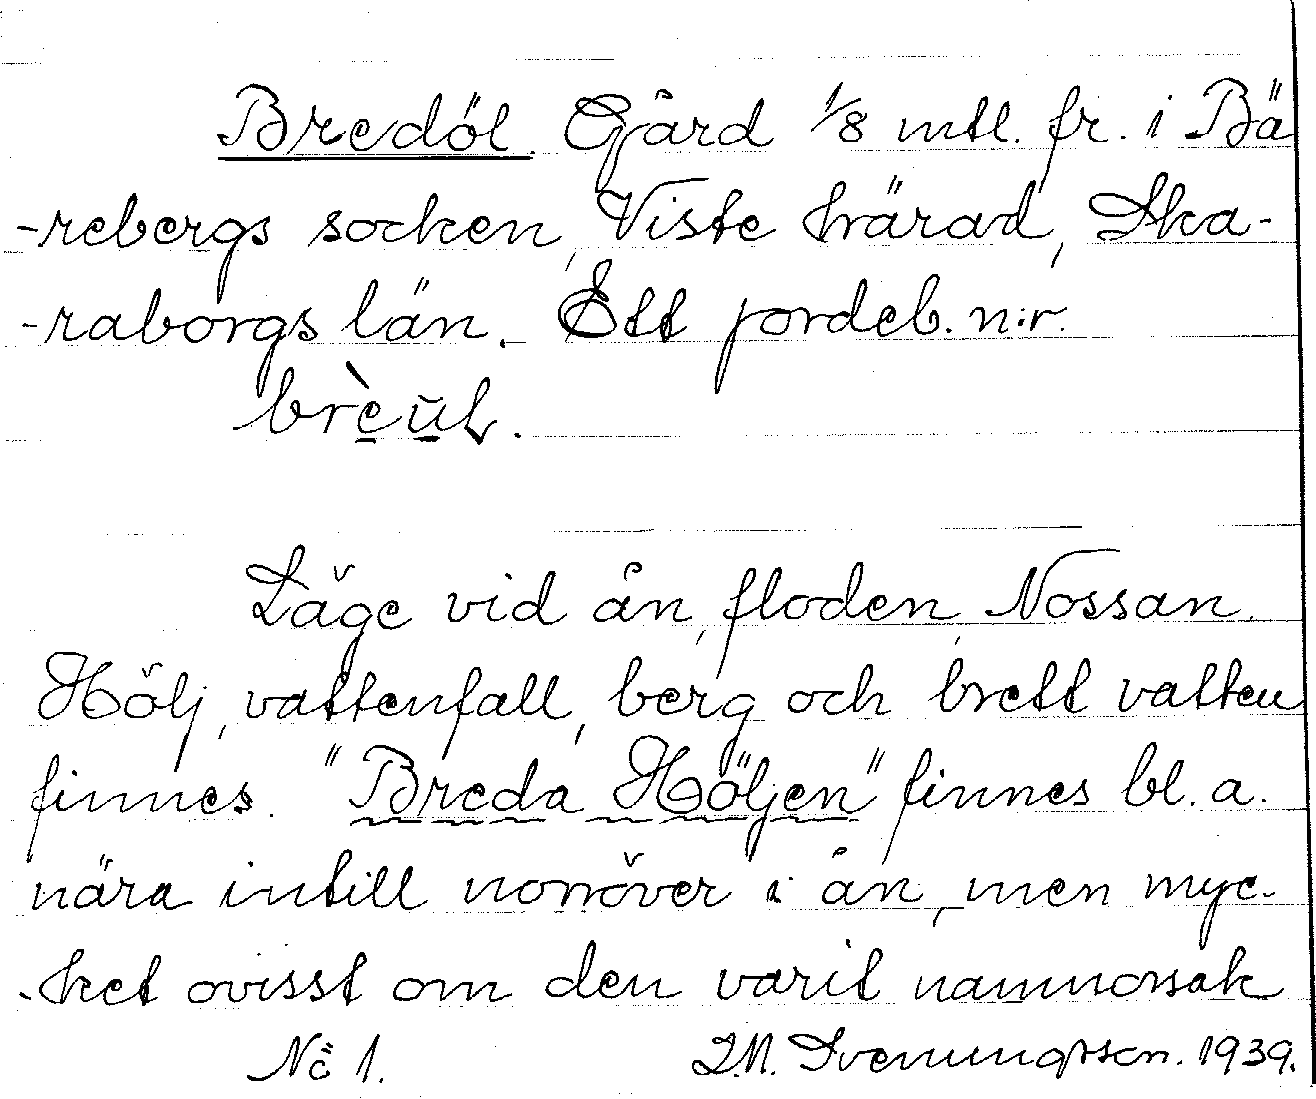 Bredöl. Gård 1/8 mtl. fr. i Bä
-rebergs socken, Viste härad, Ska-
-raborgs län. Ett jordeb. n:r.
brèul.
Läge vid ån, floden, Nossan.
Hölj, vattenfall, berg och brett vatten
finnes. "Breda Höljen" finnes bl. a.
nära intill norröver i ån, men myc-
-ket ovisst om den varit namnorsak
No 1. Svenungsson. 1939.